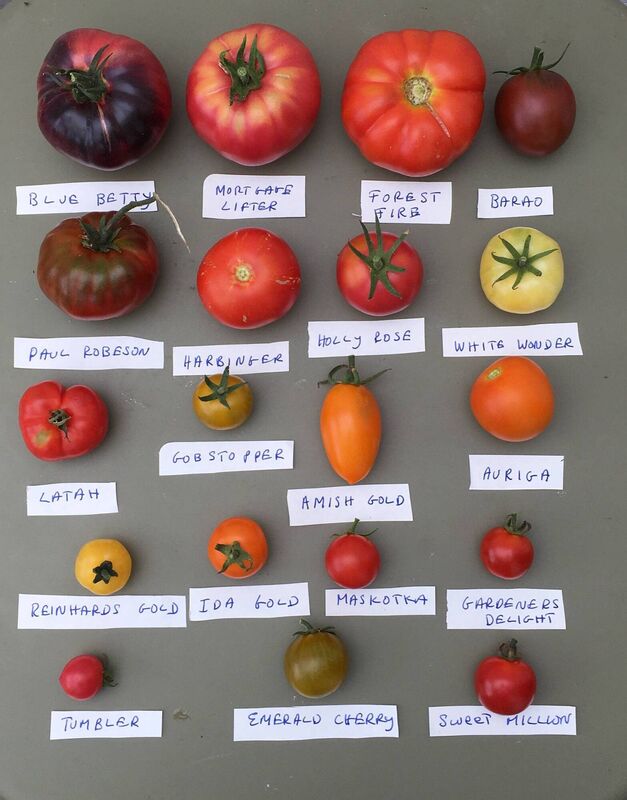 BLUE BETTY
MORTGAGE
LIFTER
FOREST
FIRE
BARAO
PAUL ROBESON
HARBINGER
HOLLY ROSE
WHITE WONDER
LATAH
GOBSTOPPER
AMISH GOLD
AURIGA
REINHARDS GOLD
IDA GOLD
MASKOTKA
GARDENERS
DELIGHT
TUMBLER
EMERALD CHERRY
SWEET MILLION